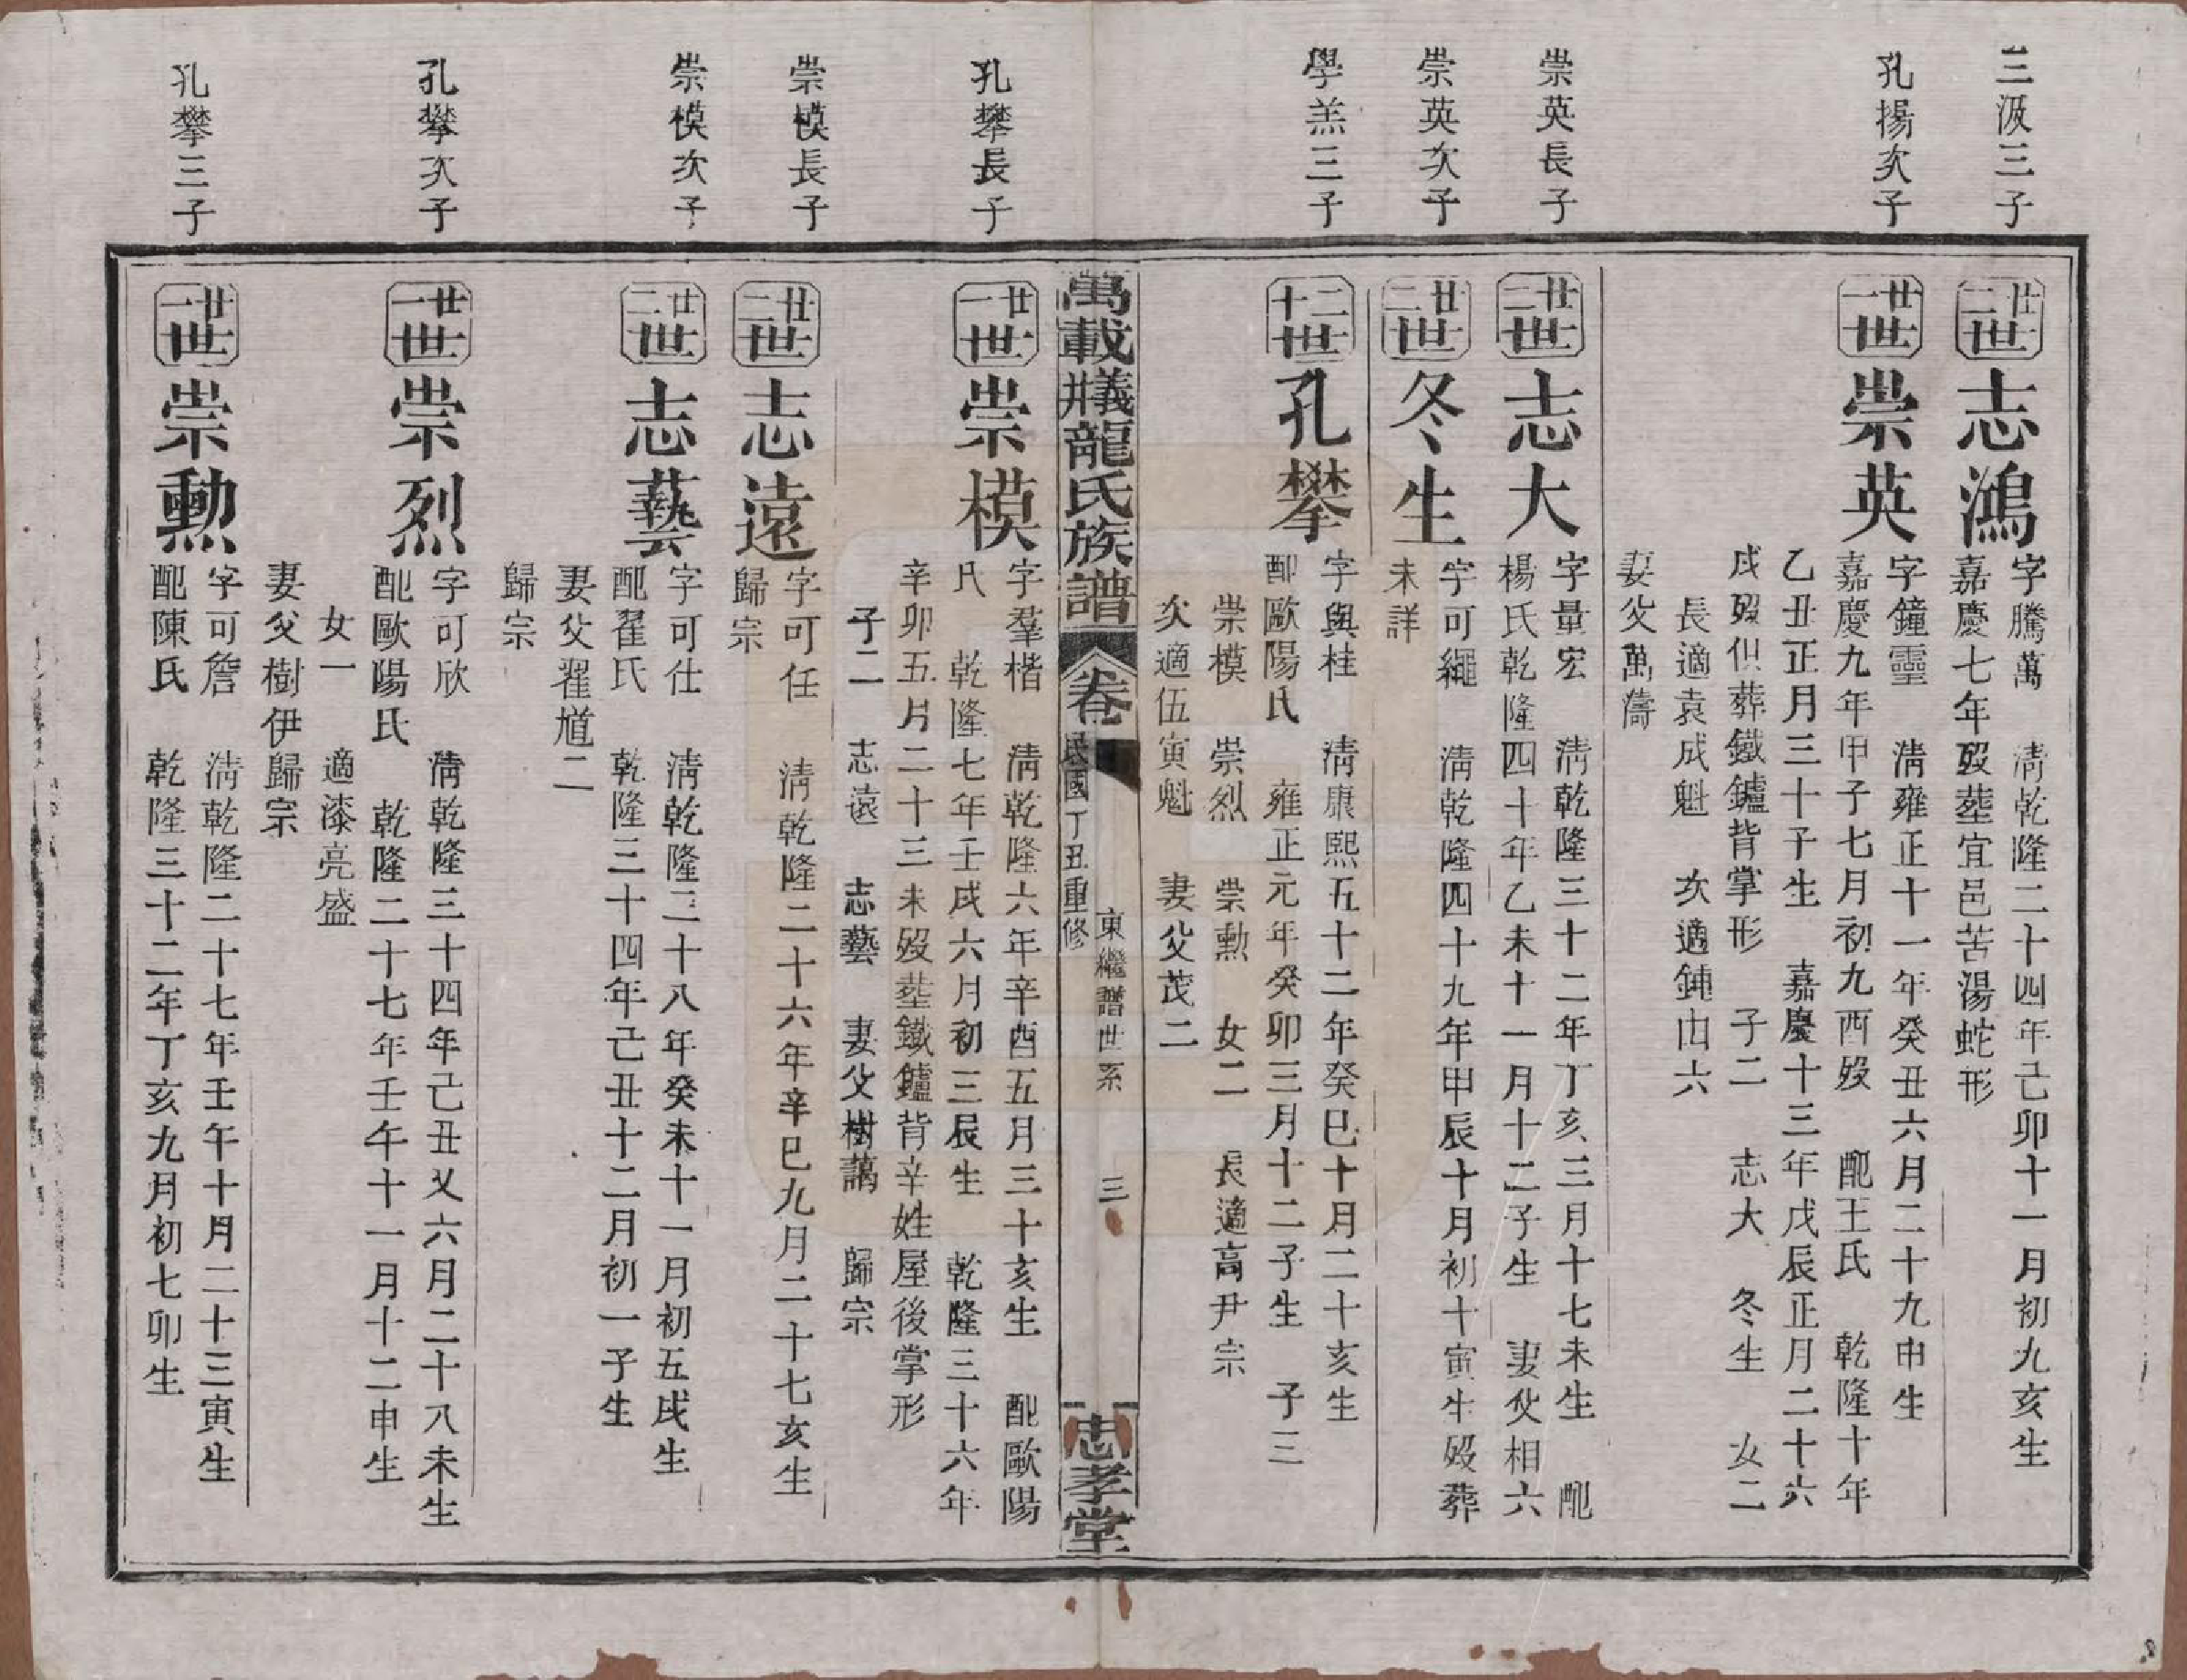 三汲三子
廿二世 志鴻
字騰萬 清乾隆二十四年己卯十一月初九亥生
嘉慶七年歿塟宜邑苦湯蛇形
孔揚次子
廿一世 崇英
字鐘靈 清雍正十一年癸丑六月二十九申生
嘉慶九年甲子七月初九酉歿 配王氏 乾隆十年
乙丑正月三十子生 嘉慶十三年戊辰正月二十六
戌歿俱葬鐵鑪背掌形 子二 志大 冬生 女二
長適袁成魁 次適鍾由六
妻父萬濤
崇英長子
廿二世 志大
字量宏 清乾隆三十二年丁亥三月十七未生 配
楊氏乾隆四十年乙未十一月十二子生 妻父相六
崇英次子
廿二世 冬生
字可繩 清乾隆四十九年甲辰十月初十寅生歿葬
未詳
學羔三子
二十世 孔攀
字與桂 清康熙五十二年癸巳十月二十亥生
配歐陽氏 雍正元年癸卯三月十二子生 子三
崇模 崇烈 崇勲 女二 長適高尹宗
次適伍寅魁 妻父茂二
萬載㸚義龍氏族譜 卷一 民國丁丑重修 東繼譜世系 三 忠孝堂
孔攀長子
廿一世 崇模
字羣楷 清乾隆六年辛酉五月三十亥生 配歐陽
氏 乾隆七年壬戌六月初三辰生 乾隆三十六年
辛卯五月二十三未歿塟鐵鑪背辛姓屋後掌形
子二 志遠 志藝 妻父樹藹 歸宗
崇模長子
廿二世 志遠
字可任 清乾隆二十六年辛巳九月二十七亥生
歸宗
崇模次子
廿二世 志藝
字可仕 清乾隆二十八年癸未十一月初五戌生
配翟氏 乾隆三十四年己丑十二月初一子生
妻父翟馗二
歸宗
孔攀次子
廿一世 崇烈
字可欣 清乾隆三十四年己丑乂六月二十八未生
配歐陽氏 乾隆二十七年壬午十一月十二申生
女一 適漆亮盛
妻父樹伊歸宗
孔攀三子
廿一世 崇勲
字可詹 清乾隆二十七年壬午十月二十三寅生
配陳氏 乾隆三十二年丁亥九月初七卯生